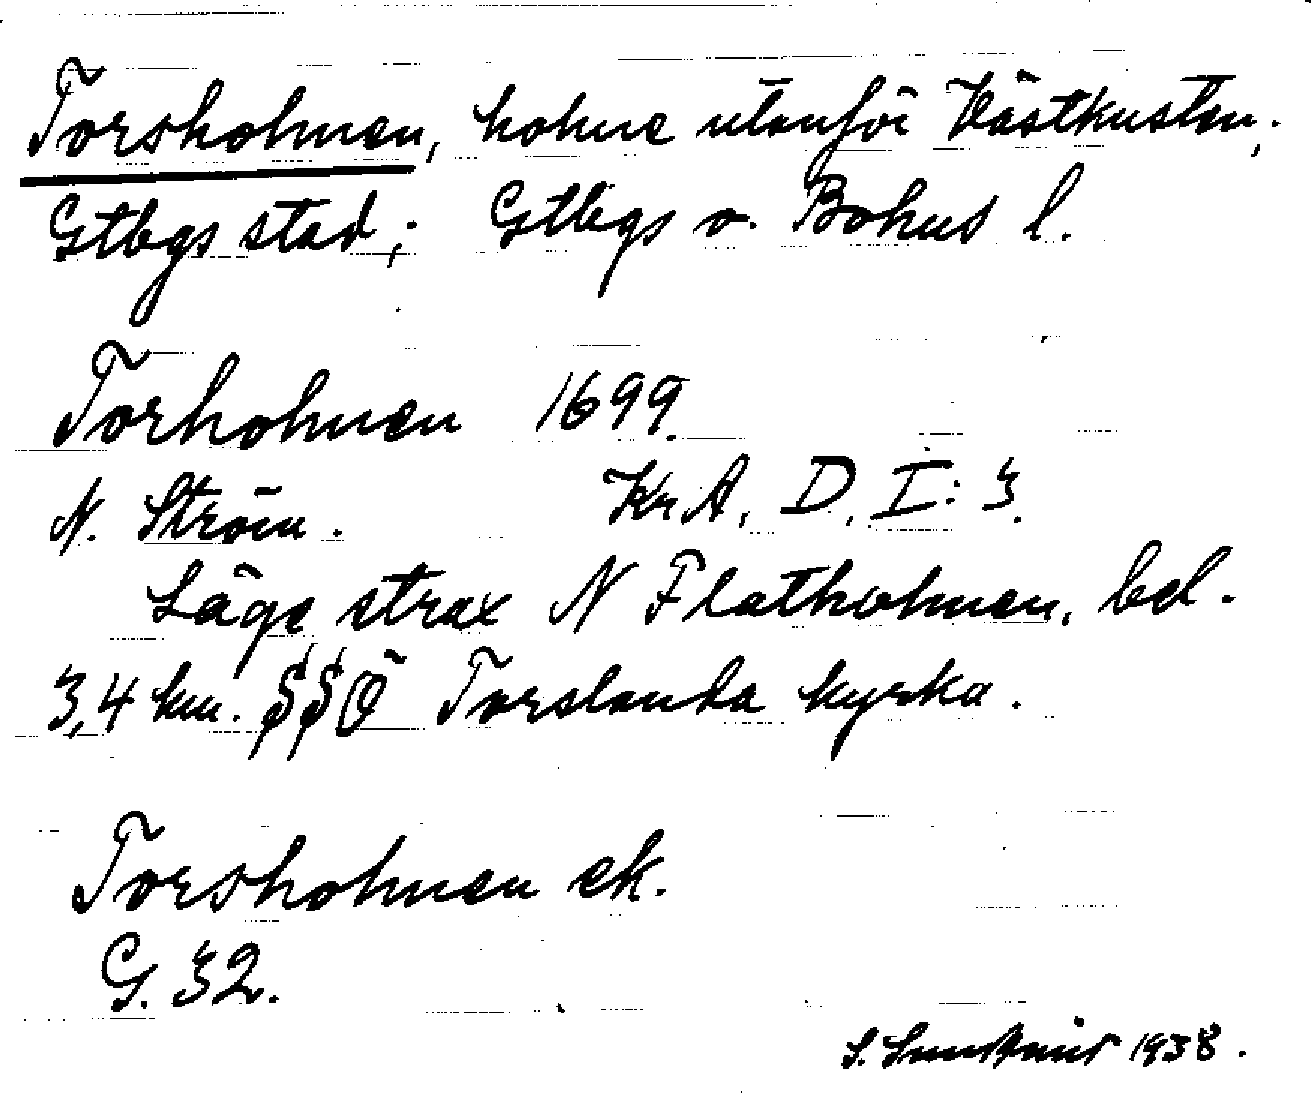 Torsholmen, holme utanför Västkusten,
Gtbgs stad; Gtbgs o. Bohus l.
Torholmen 1699.
N. Ström. Kr.A. D. I: 3.
Läge strax N Flatholmen, bel.
3,4 km. SSÖ Torslanda kyrka.
Torsholmen ek.
G. 32.
S. 1938.